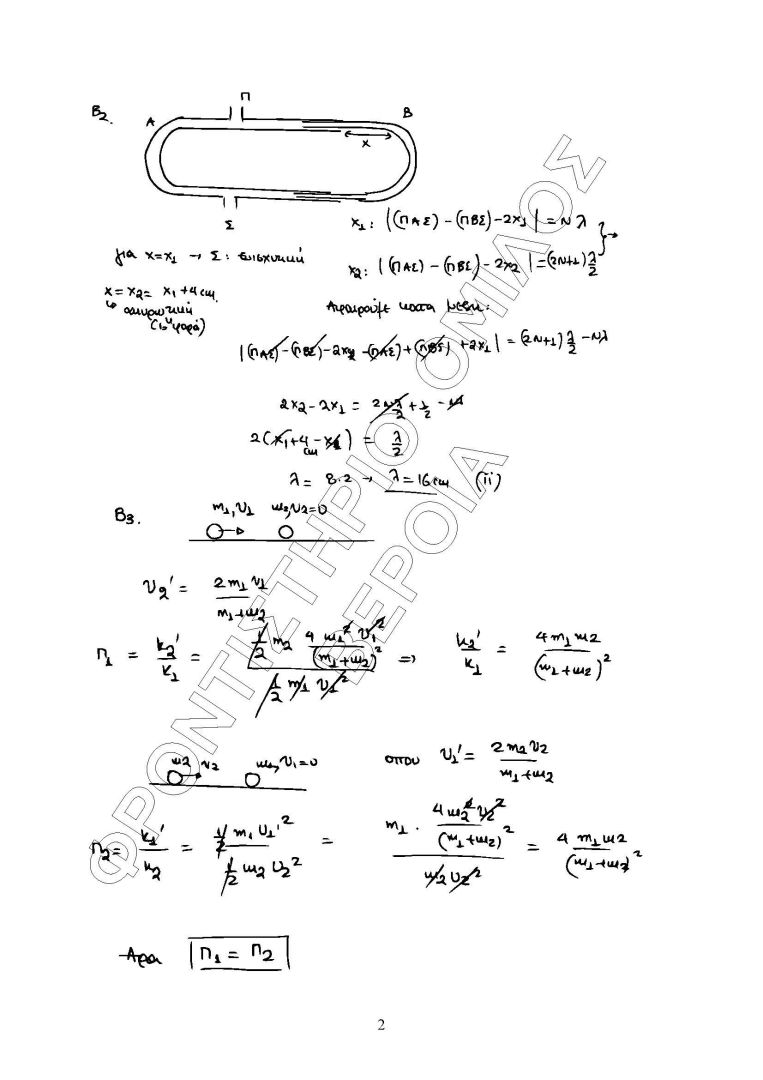 B2.
Π
A
B
x
Σ
x₁: |(ΠΑΣ) - (ΠΒΣ) - 2x₁| = Nλ
για x=x₁ → Σ: ενισχυτική
x₂: |(ΠΑΣ) - (ΠΒΣ) - 2x₂| = (2N+1) λ/2
x = x₂ = x₁ + 4cm
↳ αποσβεστική
(1η φορά)
Αφαιρούμε κατά μέλη:
|(ΠΑΣ) - (ΠΒΣ) - 2x₂ - (ΠΑΣ) + (ΠΒΣ) + 2x₁| = (2N+1) λ/2 - Nλ
2x₂ - 2x₁ = 2Nλ/2 + λ/2 - Nλ
2(x₁ + 4cm - x₁) = λ/2
λ = 8·2 → λ = 16cm (ii)
B3.
m₁, υ₁ m₂, υ₂=0
υ₂' = 2m₁υ₁/(m₁+m₂)
Π₁ = K₂'/K₁ = (1/2 m₂ 4m₁²υ₁²/(m₁+m₂)²)/(1/2 m₁υ₁²) ⇒ K₂'/K₁ = 4m₁m₂/(m₁+m₂)²
m₂ υ₂ m₁, υ₁=0 όπου υ₁' = 2m₂υ₂/(m₁+m₂)
Π₂ = K₁'/K₂ = (1/2 m₁υ₁'²)/(1/2 m₂υ₂²) = (m₁ · 4m₂²υ₂²/(m₁+m₂)²)/(m₂υ₂²) = 4m₁m₂/(m₁+m₂)²
Άρα Π₁ = Π₂
ΦΡΟΝΤΙΣΤΗΡΙΟ ΟΜΙΛΟΣ
ΒΕΡΟΙΑ
2